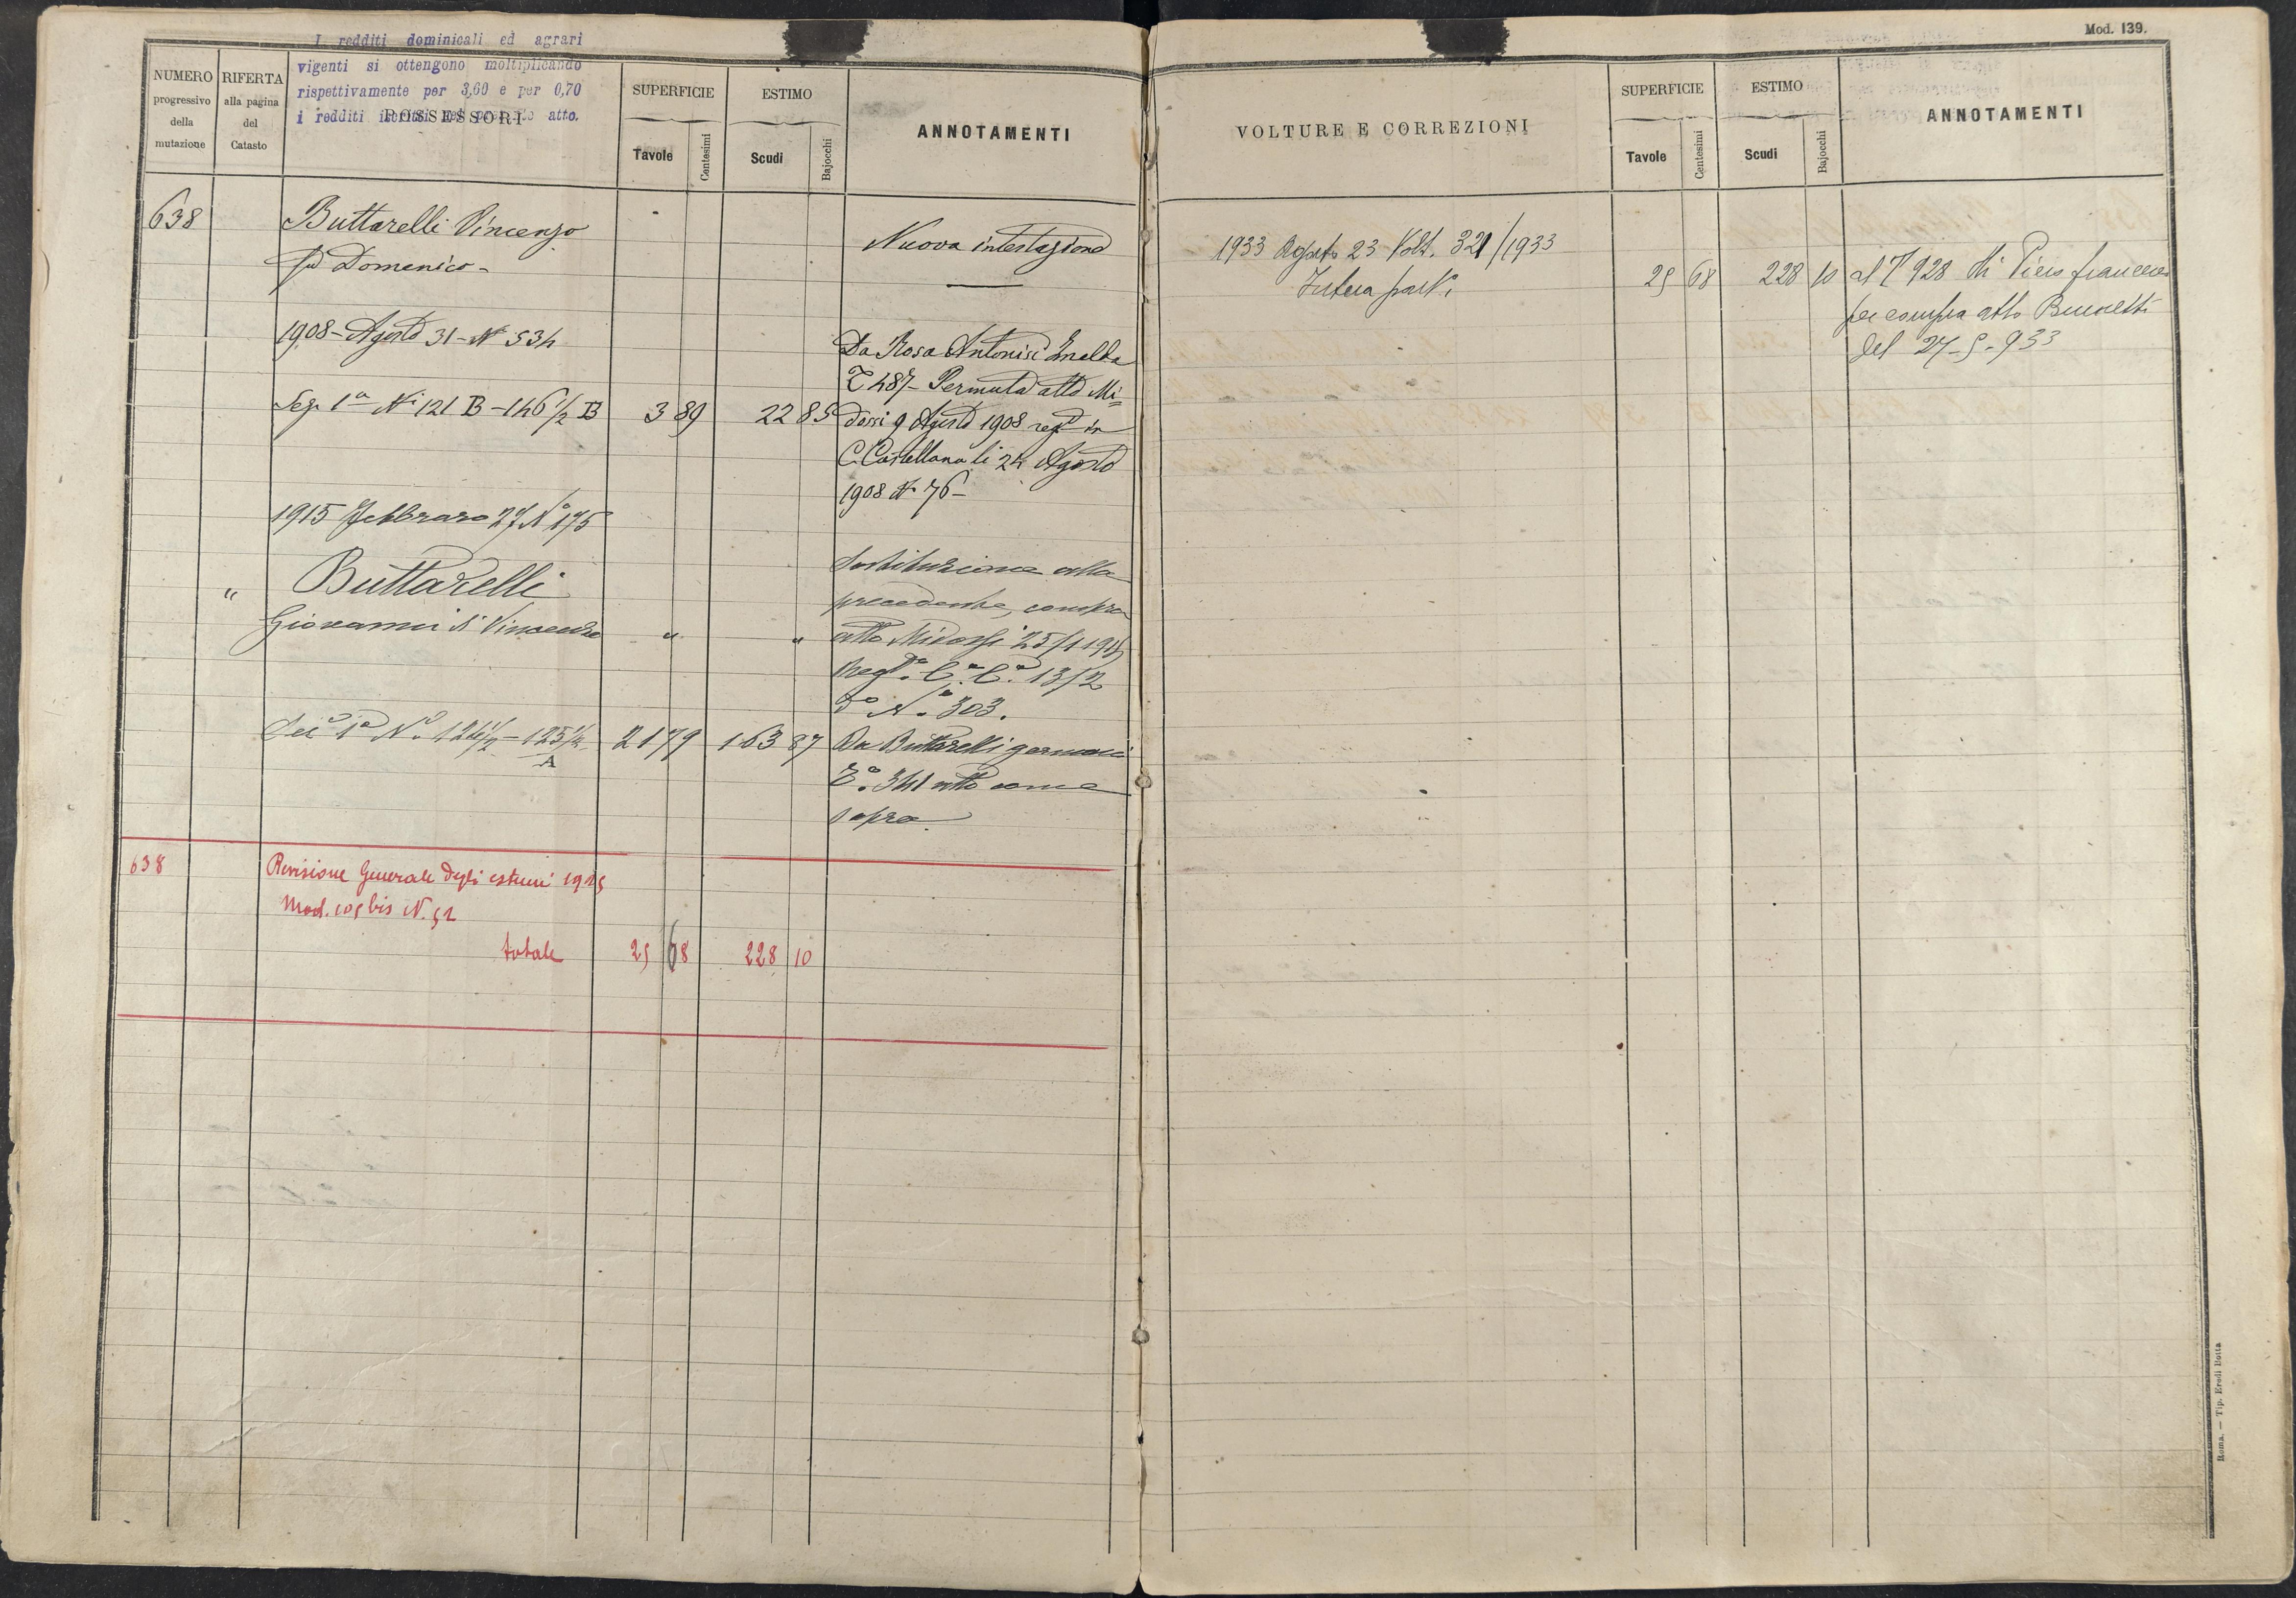 I redditi dominicali ed agrari
vigenti si ottengono moltiplicando
rispettivamente per 3,60 e per 0,70
i redditi atto.
Mod. 139.
NUMERO progressivo della mutazione
RIFERTA alla pagina del Catasto
POSSESSORI
SUPERFICIE
Tavole Centesimi
ESTIMO
Scudi Bajocchi
ANNOTAMENTI
638 Buttarelli Vincenzo Nuova intestazione
fu Domenico -
1908 - Agosto 31 - N 534 Da Rosa Antonisi
T 487 - Permuta atto Mi=
Sez. 1a Ni 121 B - 146 1/2 B 3 89 22 85 dossi 9 Agosto 1908 regto in
C. Castellana li 24 Agosto
1908 N. 76 -
1915 Febbraro 27 No 175
Sostituzione alla
" Buttarelli precedente, compra
Giovanni di Vincenzo " " atto Midossi 25/1
Regto. Ca. Ca. 13/2
do No. 303.
Sez 1a No. 124 1/2 - 125 1/2 A 21 79 163 87 Da Buttarelli germani
To. 341 atto come
sopra.
638 Revisione Generale degli estimi
Mod. bis N. 52
totale 25 68 228 10
VOLTURE E CORREZIONI
SUPERFICIE
Tavole Centesimi
ESTIMO
Scudi Bajocchi
ANNOTAMENTI
1933 Agosto 23 Volt. 321/1933
Intera part. 25 68 228 10 al T 928 di Piero
per compra atto Brunetti
del 27-5-933
Roma. — Tip. Eredi Botta